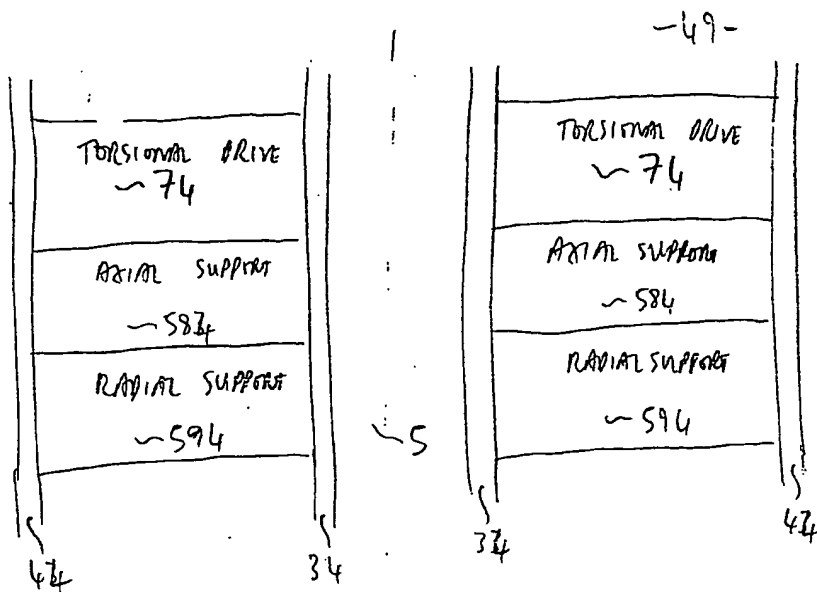 -49-
TORSIONAL DRIVE
74
AXIAL SUPPORT
584
RADIAL SUPPORT
594
5
TORSIONAL DRIVE
74
AXIAL SUPPORT
584
RADIAL SUPPORT
594
44
34
34
44